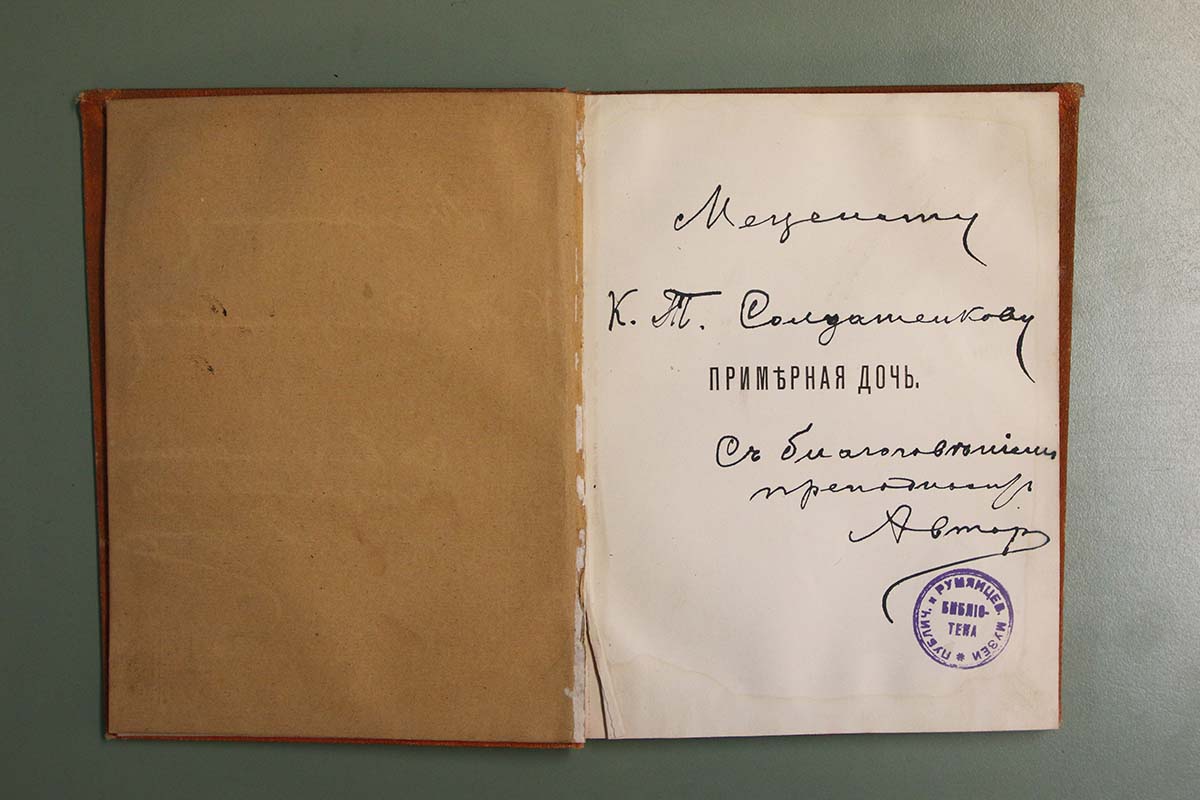 Меценату
К. Т. Солдатенкову
ПРИМѢРНАЯ ДОЧЬ.
Съ благоговѣніемъ
преподноситъ
Авторъ
ПУБЛИЧ. и РУМЯНЦЕВ. МУЗЕИ
БИБЛІО-
ТЕКА